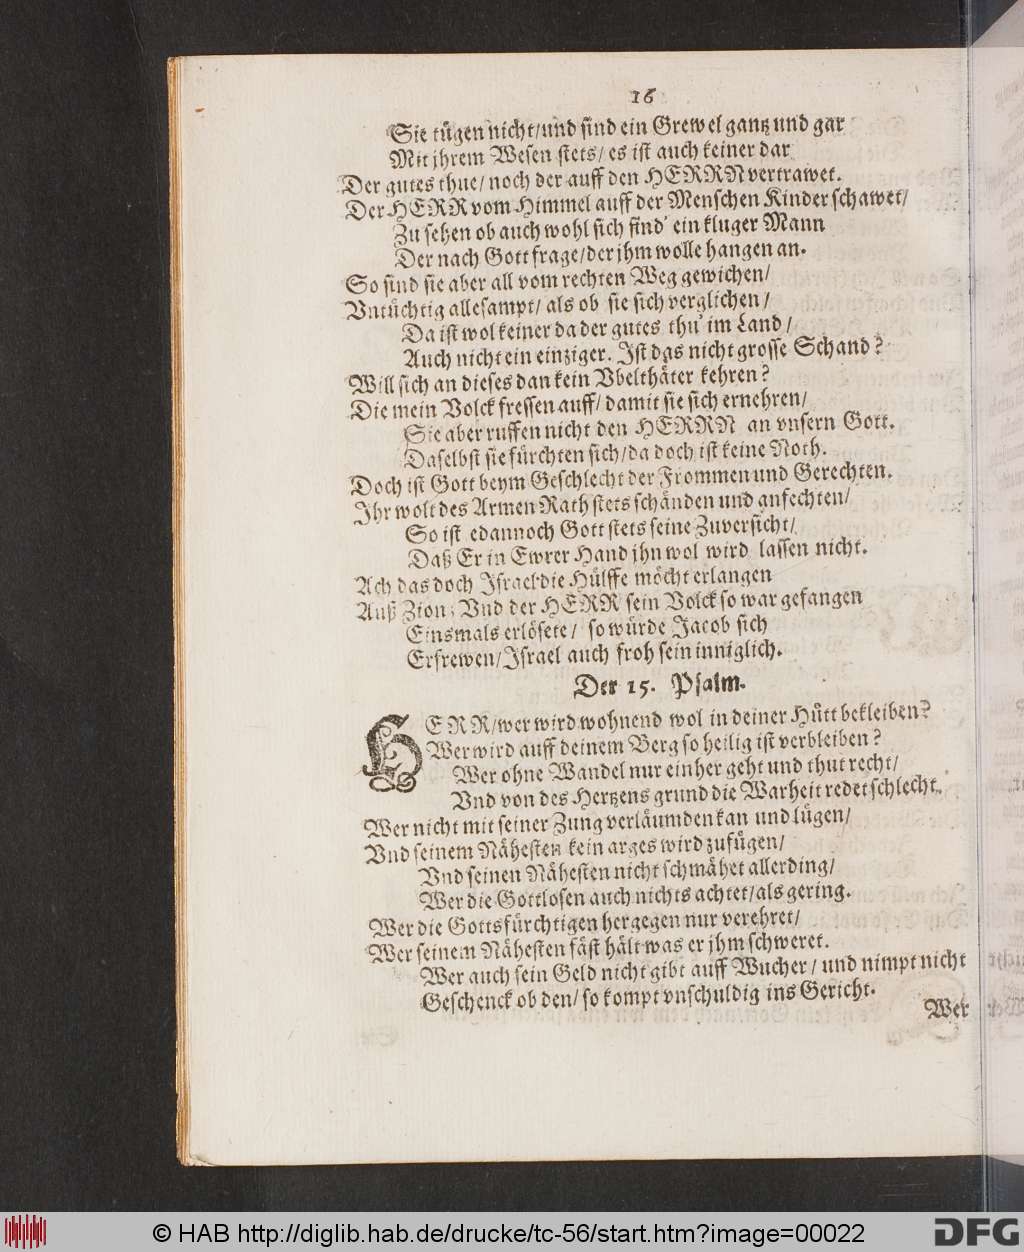 16
Sie tügen nicht/und sind ein Grewel gantz und gar
Mit jhrem Wesen stets/ es ist auch keiner dar
Der gutes thue/ noch der auff den HERRN vertrawet.
Der HERR vom Himmel auff der Menschen Kinder schawet/
Zu sehen ob auch wohl sich find' ein kluger Mann
Der nach Gott frage/der jhm wolle hangen an.
So sind sie aber all vom rechten Weg gewichen/
Vntüchtig allesampt/ als ob sie sich verglichen/
Da ist wol keiner da der gutes thu' im Land/
Auch nicht ein einziger. Ist das nicht grosse Schand?
Will sich an dieses dan kein Vbelthäter kehren?
Die mein Volck fressen auff/ damit sie sich ernehren/
Sie aber ruffen nicht den HERRN an vnsern Gott.
Daselbst sie fürchten sich/da doch ist keine Noth.
Doch ist Gott beym Geschlecht der Frommen und Gerechten.
Ihr wolt des Armen Rath stets schänden und anfechten/
So ist edannoch Gott stets seine Zuversicht/
Daß Er in Ewrer Hand jhn wol wird lassen nicht.
Ach das doch Israel die Hülffe möcht erlangen
Auß Zion; Vnd der HERR sein Volck so war gefangen
Einsmals erlösete/ so würde Jacob sich
Erfrewen/Israel auch froh sein inniglich.
Der 15. Psalm.
HERR/wer wird wohnend wol in deiner Hütt bekleiben?
Wer wird auff deinem Berg so heilig ist verbleiben?
Wer ohne Wandel nur einher geht und thut recht/
Vnd von des Hertzens grund die Warheit redet schlecht.
Wer nicht mit seiner Zung verläumden kan und lügen/
Vnd seinem Nähesten kein arges wird zufügen/
Vnd seinen Nähesten nicht schmähet allerding/
Wer die Gottlosen auch nichts achtet/als gering.
Wer die Gottsfürchtigen hergegen nur verehret/
Wer seinem Nähesten fäst hält was er jhm schweret.
Wer auch sein Geld nicht gibt auff Wucher/ und nimpt nicht
Geschenck ob den/ so kompt vnschuldig ins Gericht.
Wer
© HAB http://diglib.hab.de/drucke/tc-56/start.htm?image=00022
DFG